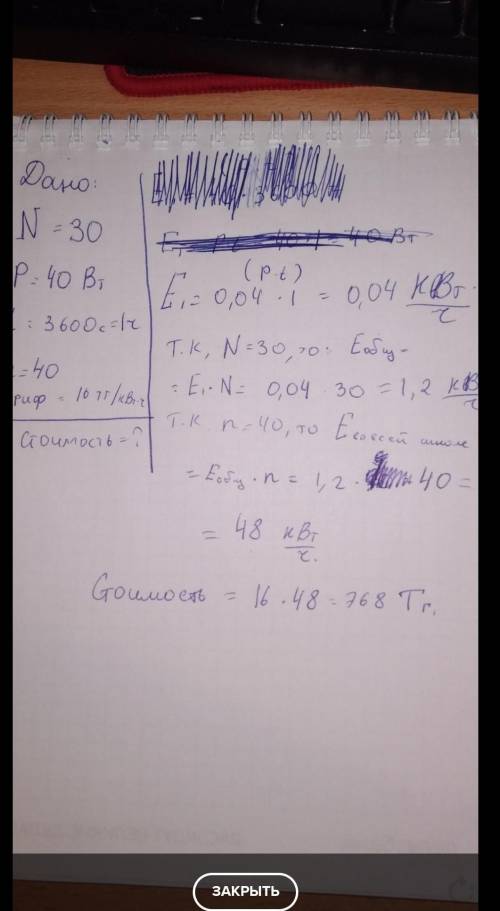 Дано:
N = 30
P = 40 Вт
: 3600с = 1ч
= 40
риф = 16 тг/кВт·ч
Стоимость = ?
(P·t)
E₁ = 0,04 · 1 = 0,04 кВт/ч
Т.к, N = 30, то: Eобщ =
= E₁ · N = 0,04 · 30 = 1,2 кВ/ч
Т.к. n = 40, то E всей школе
= Eобщ · n = 1,2 · 40 =
= 48 кВт/ч.
Стоимость = 16 · 48 = 768 Тг.
ЗАКРЫТЬ